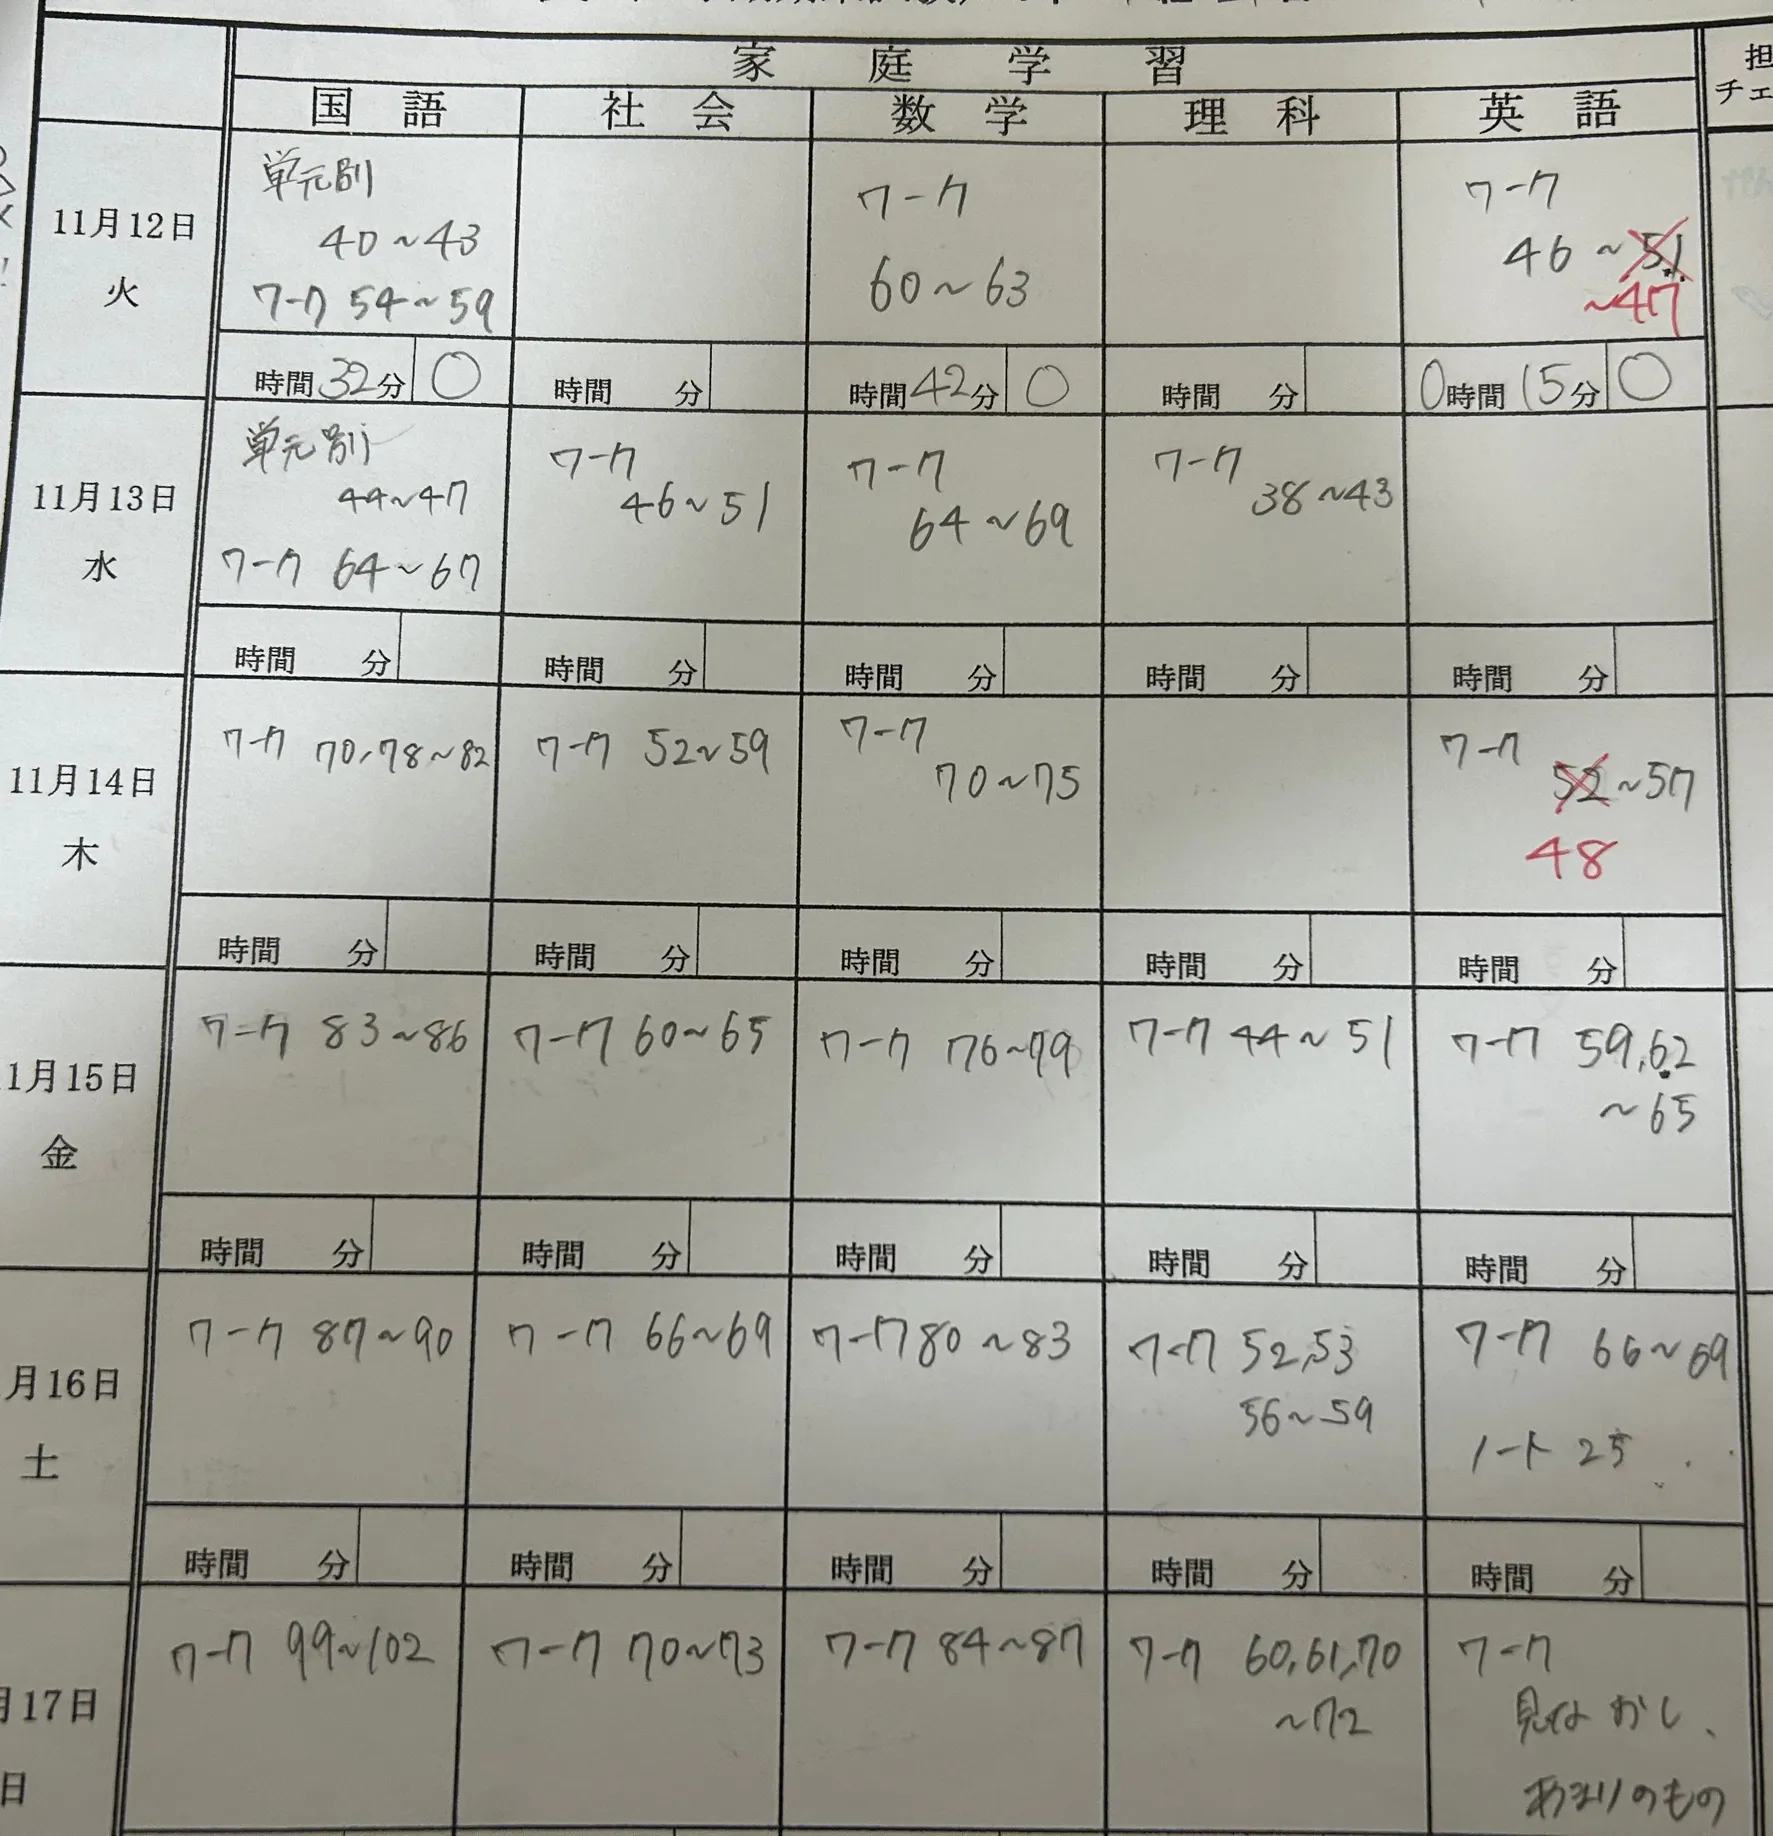 家庭学習
担
国語 社会 数学 理科 英語
チェ
11月12日
火
単元別
40~43
ワーク 54~59
ワーク
60~63
ワーク
46~51
~47
時間32分 〇
時間 分
時間42分 〇
時間 分
0時間15分 〇
11月13日
水
単元別
44~47
ワーク 64~67
ワーク
46~51
ワーク
64~69
ワーク
38~43
時間 分
時間 分
時間 分
時間 分
時間 分
11月14日
木
ワーク 70,78~82
ワーク 52~59
ワーク
70~75
ワーク
52~57
48
時間 分
時間 分
時間 分
時間 分
時間 分
1月15日
金
ワーク 83~86
ワーク 60~65
ワーク 76~79
ワーク 44~51
ワーク 59,62
~65
時間 分
時間 分
時間 分
時間 分
時間 分
月16日
土
ワーク 87~90
ワーク 66~69
ワーク 80~83
ワーク 52,53
56~59
ワーク 66~69
ノート 25
時間 分
時間 分
時間 分
時間 分
時間 分
月17日
日
ワーク 99~102
ワーク 70~73
ワーク 84~87
ワーク 60,61,70
~72
ワーク
見なおし、
あまりのもの